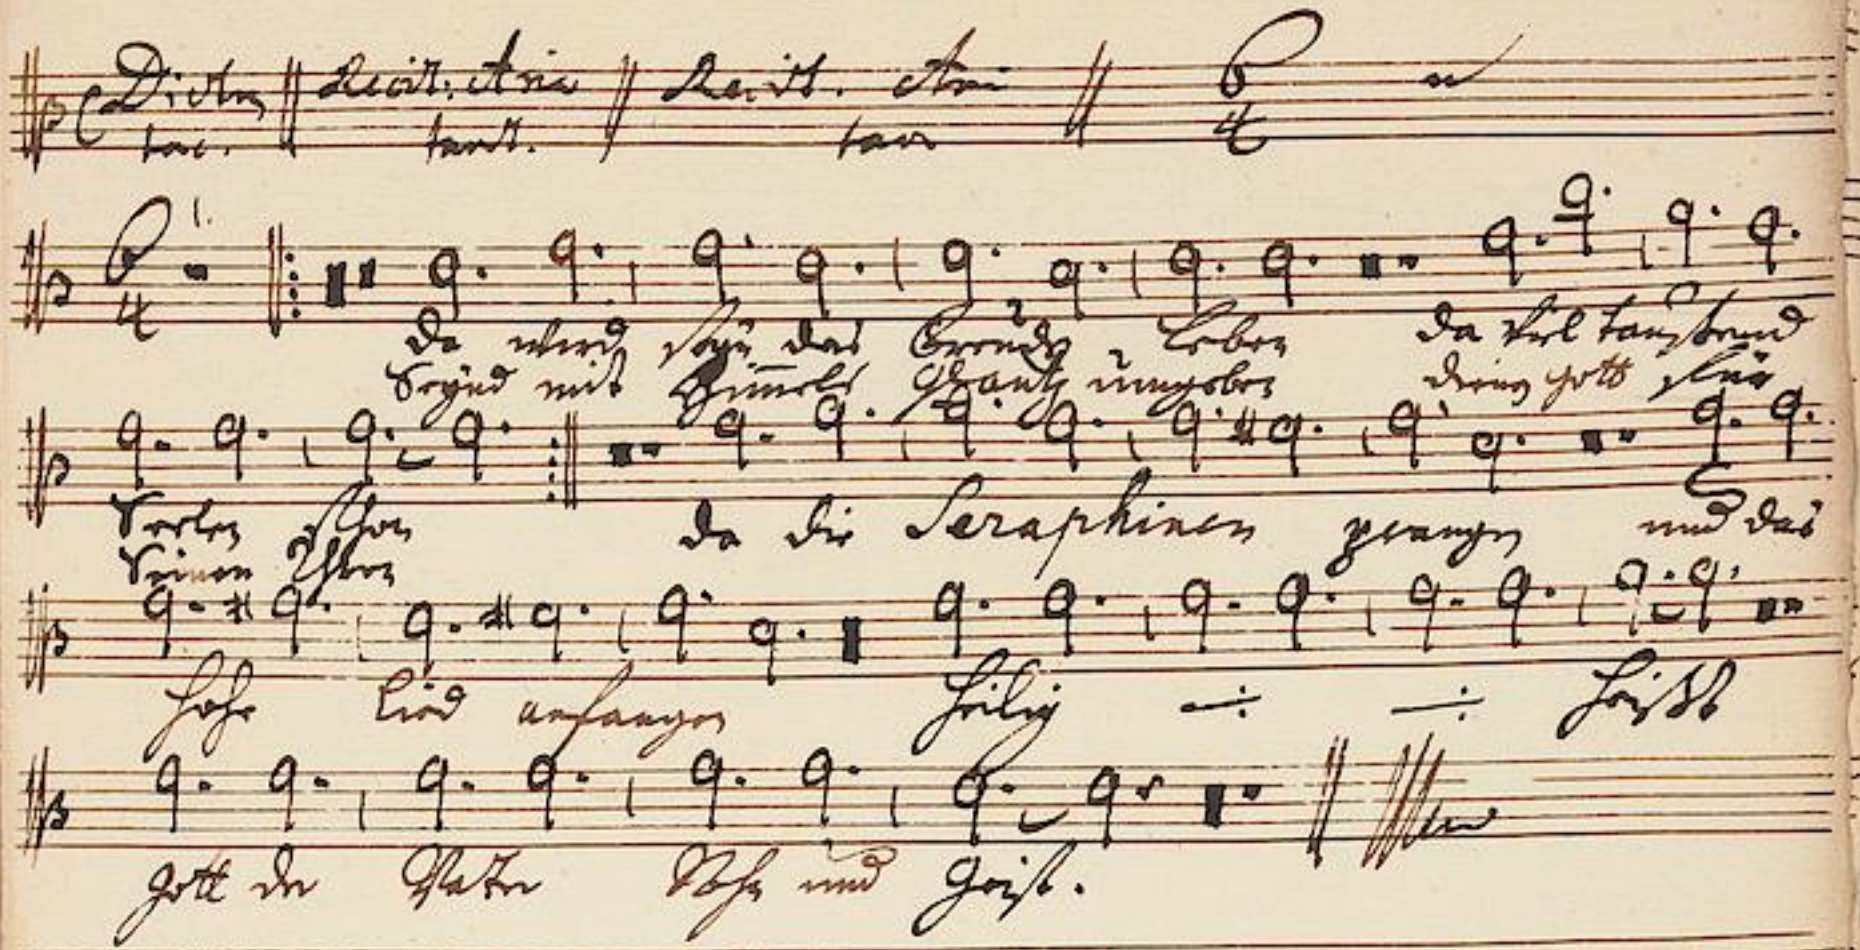 Dictum Recit: Aria Recit. Aria
tac. tacet. tac
6 4
da wird seyn das Freuden Leben da viel tausend
Seynd mit Himmels Glantz umgeben dienen Gott für
Seelen schon da die Seraphinen prangen und das
Seinen Thron
hohe Lied anfangen heilig ⁒ ⁒ heißt
Gott der Vater Sohn und Geist.